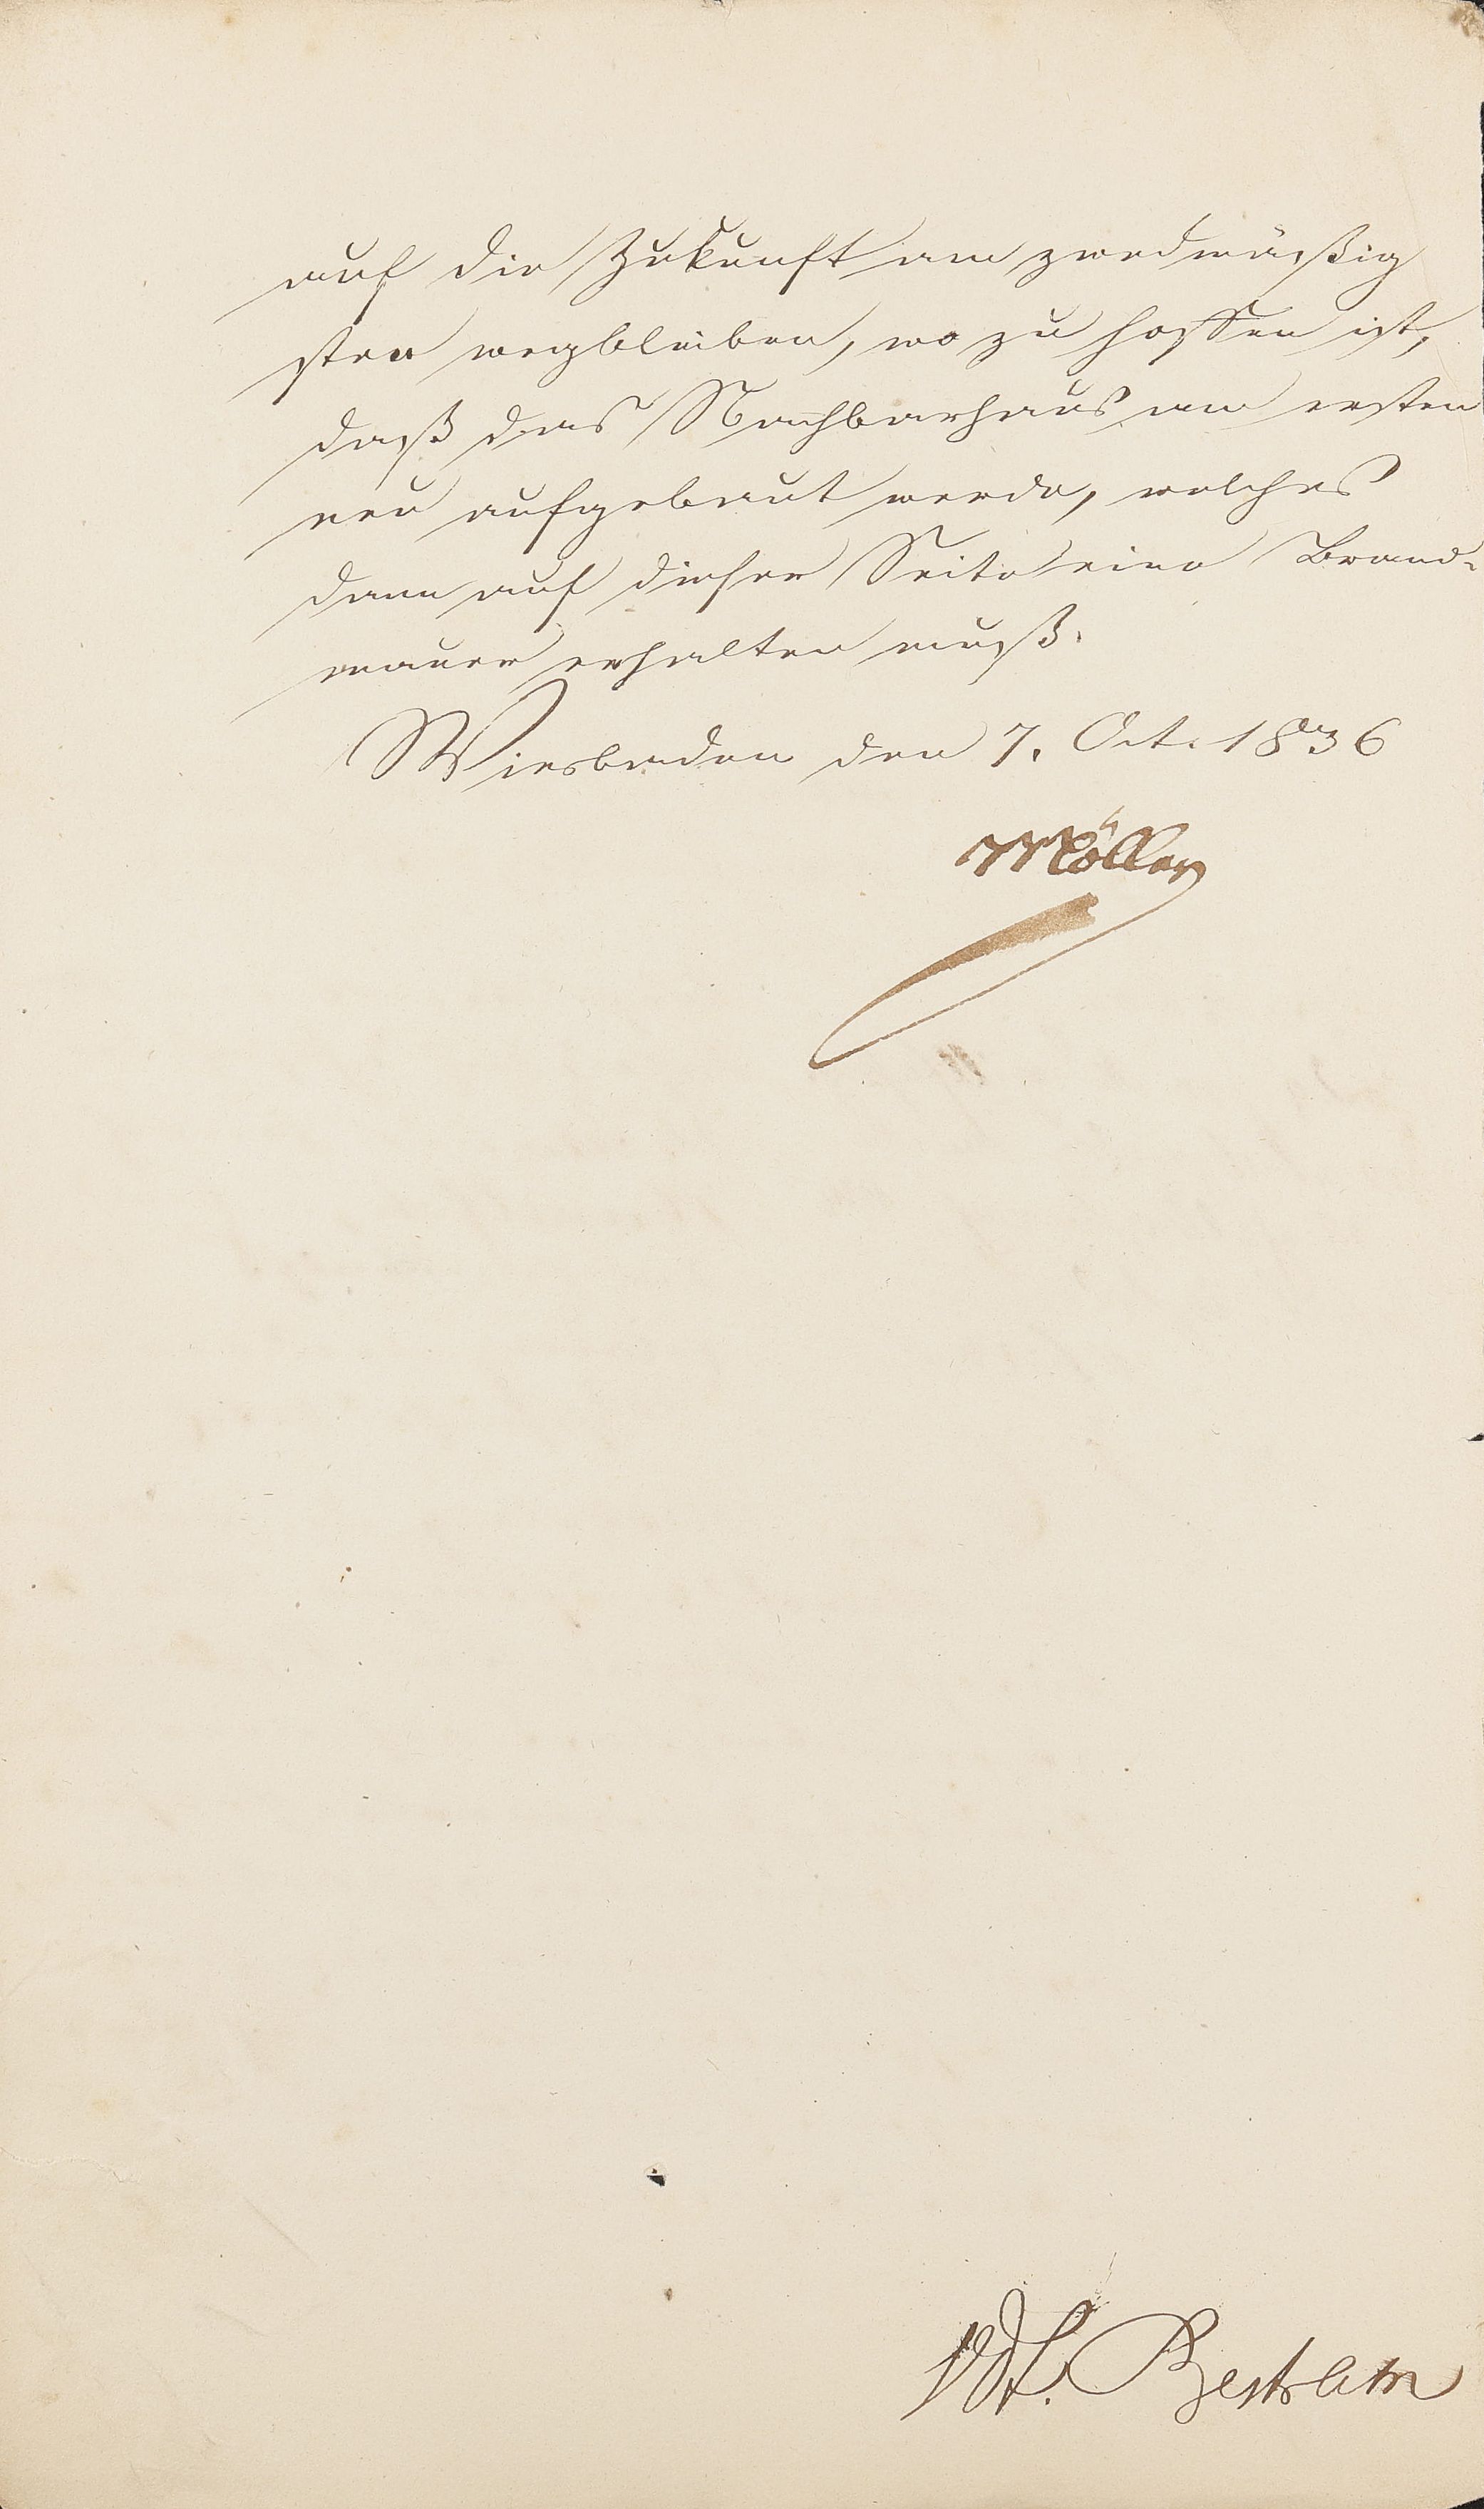 auf die Zukunft am zweckmäßig
sten wegbleiben, wo zu hoffen ist,
daß das Nachbarhaus am ersten
neu aufgebaut werde, welches
dann auf dieser Seite eine Brand-
mauer erhalten muß.
Wiesbaden den 7. Oct. 1836
Möller
Vdt. Bertram